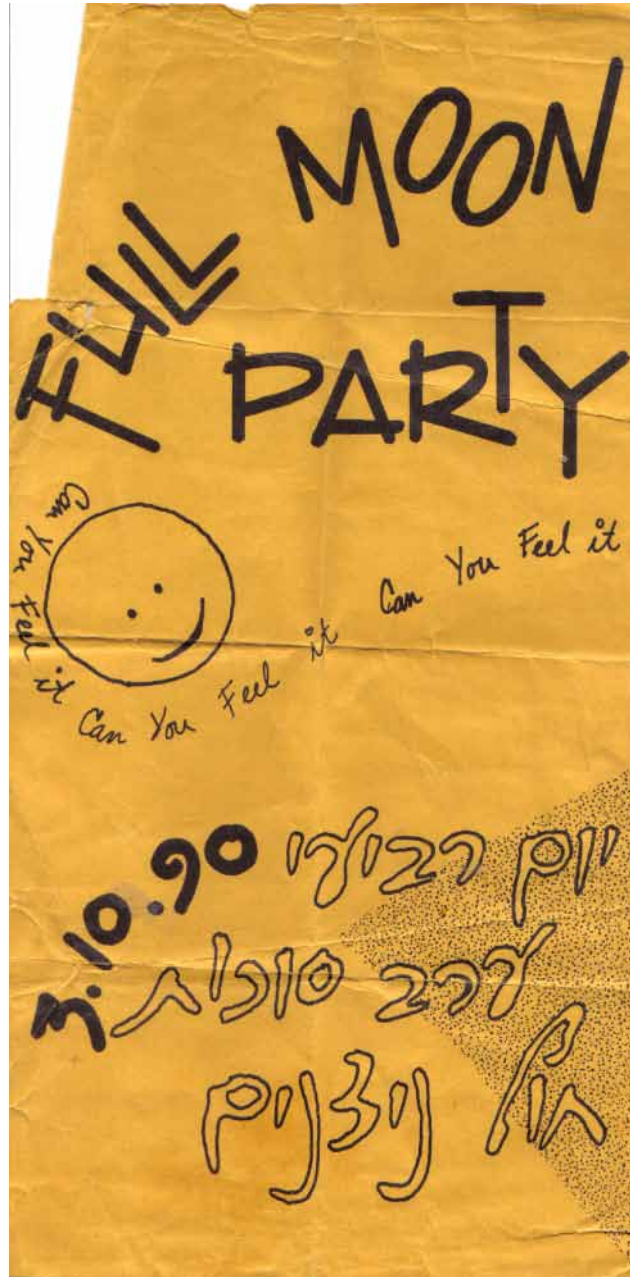 FULL MOON
PARTY
Can You Feel it Can You Feel it Can You Feel it
יום רביעי 3.10.90
ערב סוכות
חוף ניצנים